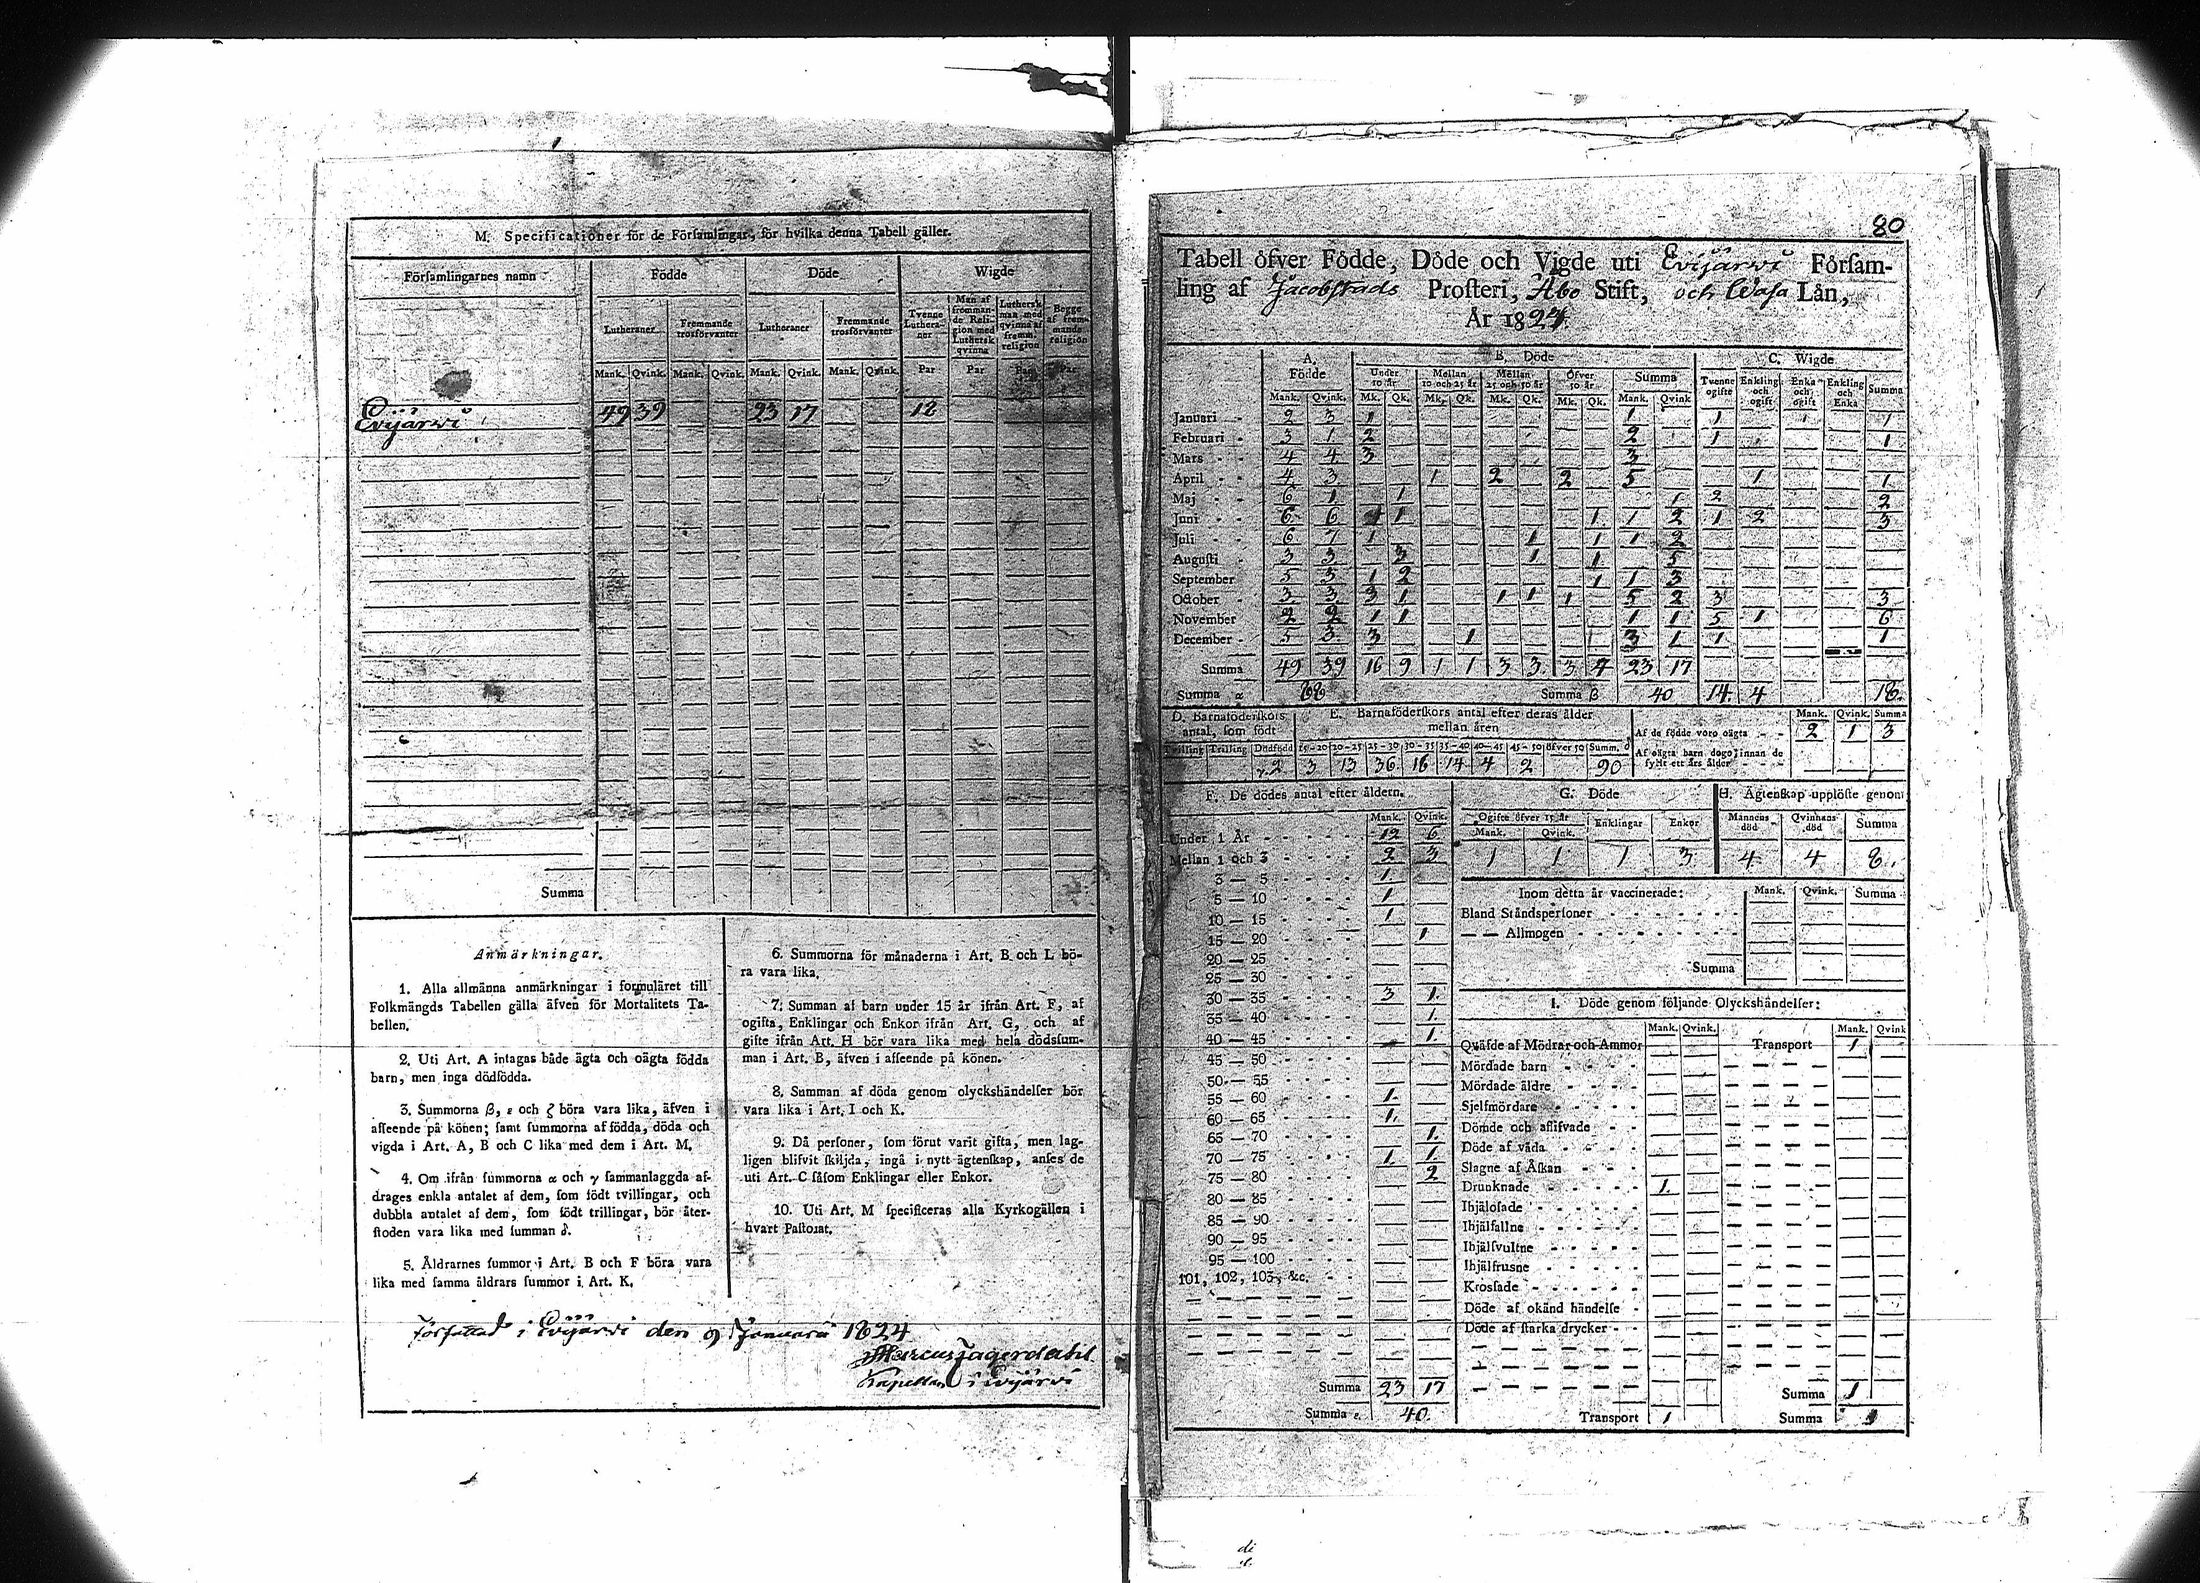 M. Specificationer för de Församlingar, för hvilka denna Tabell gäller.
Församlingarnes namn Födde Döde Wigde
Lutheraner Fremmande trosförvanter Lutheraner Fremmande trosförvanter Tvenne Lutheraner Man af fremmande Religion med Luthersk qvinna Luthersk man med qvinna af fremm. religion Begge af fremmande religion
Mank. Qvink. Mank. Qvink. Mank. Qvink. Mank. Qvink. Par Par Par Par
Evijärwi 49 39 23 17 18
Summa
Anmärkningar.
1. Alla allmänna anmärkningar i formuläret till
Folkmängds Tabellen gälla äfven för Mortalitets Ta-
bellen.
2. Uti Art. A intagas både ägta och oägta födda
barn, men inga dödfödda.
3. Summorna β, ε och ζ böra vara lika, äfven i
afseende på könen; samt summorna af födda, döda och
vigda i Art. A, B och C lika med dem i Art. M.
4. Om ifrån summorna α och γ sammanlaggda af-
drages enkla antalet af dem, som födt tvillingar, och
dubbla antalet af dem, som födt trillingar, bör åter-
stoden vara lika med summan δ.
5. Åldrarnes summor i Art. B och F böra vara
lika med samma åldrars summor i Art. K.
6. Summorna för månaderna i Art. B och L bö-
ra vara lika.
7. Summan af barn under 15 år ifrån Art. F, af
ogifta, Enklingar och Enkor ifrån Art. G, och af
gifte ifrån Art. H bör vara lika med hela dödssum-
man i Art. B, äfven i afseende på könen.
8. Summan af döda genom olyckshändelser bör
vara lika i Art. I och K.
9. Då personer, som förut varit gifta, men lag-
ligen blifvit skiljda, ingå i nytt ägtenskap, anses de
uti Art. C såsom Enklingar eller Enkor.
10. Uti Art. M specificeras alla Kyrkogällen i
hvart Pastorat.
Författad i Evijärwi den 9 Januarii 1824
Marcus Fagerdahl
Kapellan i Evijärwi
80
Tabell öfver Födde, Döde och Vigde uti Evijärwi Försam-
ling af Jacobstads Prosteri, Åbo Stift, och Wasa Län,
År 182
A. Födde B. Döde C. Wigde
Under 10 år Mellan 10 och 25 år Mellan 25 och 50 år Öfver 50 år Summa Tvenne ogifte Enkling och ogift Enka och ogift Enkling och Enka Summa
Mank. Qvink. Mk. Qk. Mk. Qk. Mk. Qk. Mk. Qk. Mank. Qvink
Januari 2 3 1 1 1 1
Februari 3 1 2 2 1 1
Mars 4 4 3 3
April 4 3 1 2 2 5 1 1
Maj 6 1 1 1 2 2
Juni 6 6 1 1 1 1 2 1 2 3
Juli 6 7 1 1 1 1 2
Augusti 3 3 3 1 1 5
September 5 3 1 2 1 1 3
October 3 3 3 1 1 1 1 5 2 3 3
November 2 2 1 1 1 1 5 1 6
December 5 3 3 1 3 1 1 1
Summa 49 39 16 9 1 1 3 3 3 4 23 17
Summa α 88 Summa β 40 14 4 18
D. Barnaföderskors antal, som födt E. Barnaföderskors antal efter deras ålder mellan åren
Trilling Dödfödd 15-20 20-25 25-30 30-35 35-40 40-45 45-50 öfver 50 Summ. δ
γ 2 3 13 36 16 14 4 2 90
Mank. Qvink. Summa
Af de födde voro oägta 2 1 3
Af oägta barn dogo innan de
fyllt ett års ålder
F. De dödes antal efter åldern.
Mank. Qvink.
Under 1 År 12 6
Mellan 1 och 3 2 3
3 — 5 1
5 — 10 1
10 — 15 1
15 — 20 1
20 — 25
25 — 30
30 — 35 3 1
35 — 40 1
40 — 45 1
45 — 50
50 — 55
55 — 60 1
60 — 65 1
65 — 70 1
70 — 75 1 1
75 — 80 2
80 — 85
85 — 90
90 — 95
95 — 100
101, 102, 103, &c.
Summa 23 17
Summa ε. 40
G. Döde H. Ägtenskap upplöste genom
Ogifte öfver 15 år Enklingar Enkor Mannens död Qvinnans död Summa
Mank. Qvink.
1 1 1 3 4 4 8
Inom detta år vaccinerade: Mank. Qvink. Summa
Bland Ståndspersoner
— — Allmogen
Summa
I. Döde genom följande Olyckshändelser:
Mank. Qvink. Mank. Qvink
Qväfde af Mödrar och Ammor Transport 1
Mördade barn
Mördade äldre
Sjelfmördare
Dömde och aflifvade
Döde af våda
Slagne af Åskan
Drunknade 1
Ihjälösade
Ihjälfallne
Ihjälsvultne
Ihjälfrusne
Krossade
Döde af okänd händelse
Döde af starka drycker
Summa 1
Transport 1 Summa 1